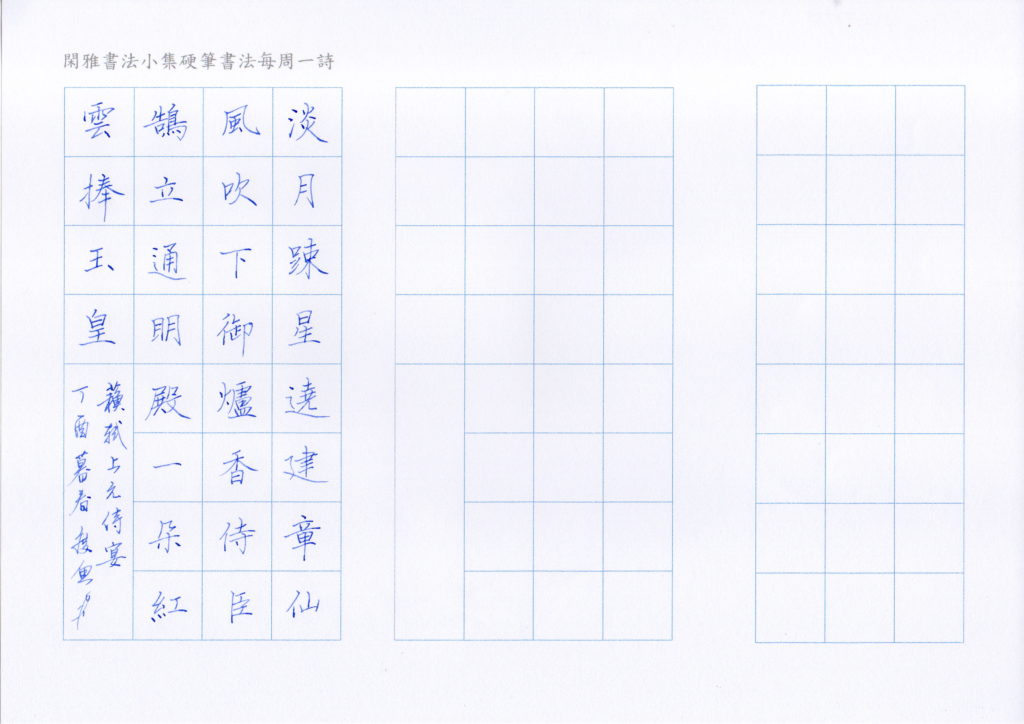 閑雅書法小集硬筆書法每周一詩
淡月踈星遶建章仙
風吹下御爐香侍臣
鵠立通明殿一朵紅
雲捧玉皇
蘇軾上元侍宴
丁酉暮春